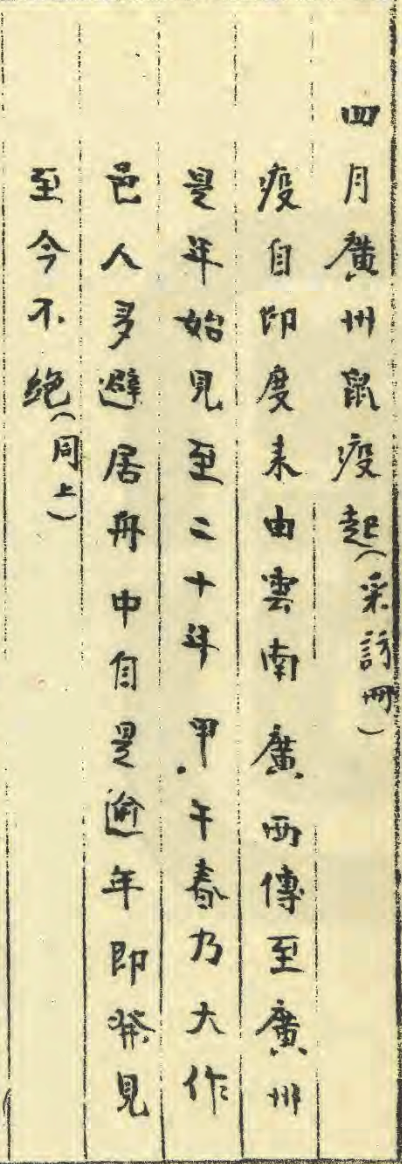 四月廣州鼠疫起（采訪冊）
疫自印度来由雲南廣西傳至廣州
是年始見至二十年甲午春乃大作
邑人多避居舟中自是逾年即發見
至今不絶（同上）